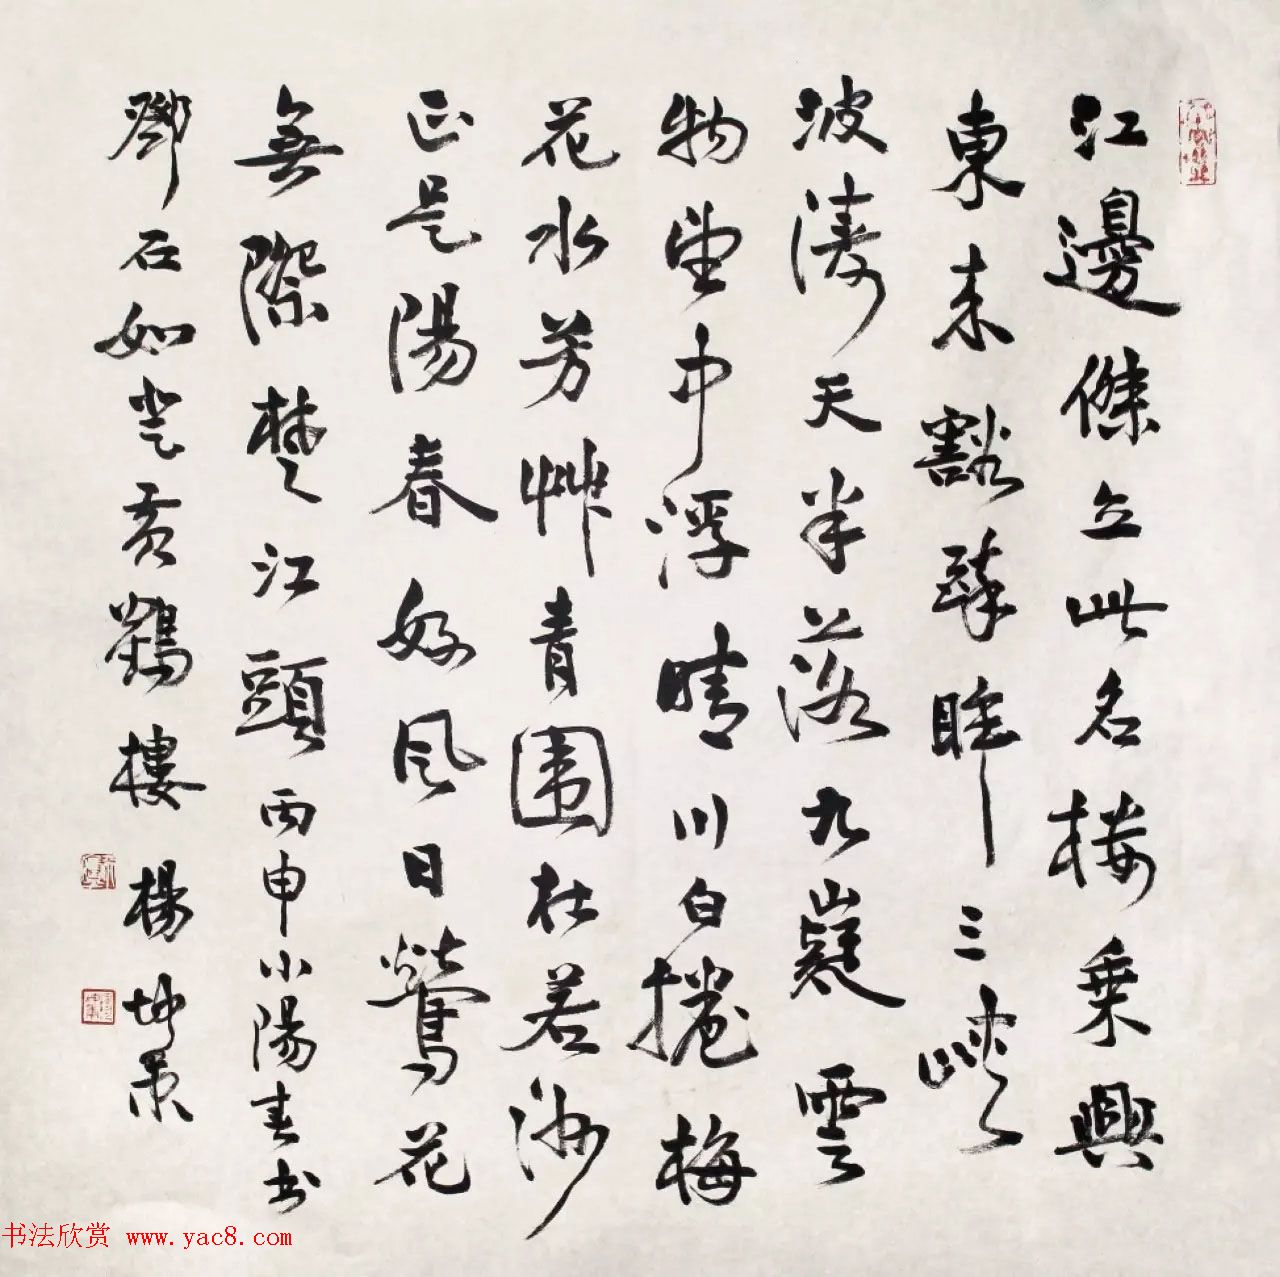 江邊傑立此名楼乗興
東来豁醉眸三峽
波濤天半落九嶷雲
物望中浮晴川白捲梅
花水芳艸青围杜若洲
正是陽春好風日鶯花
無際楚江頭丙申小陽春书
鄧石如登黄鶴樓楊坤景
书法欣赏 www.yac8.com